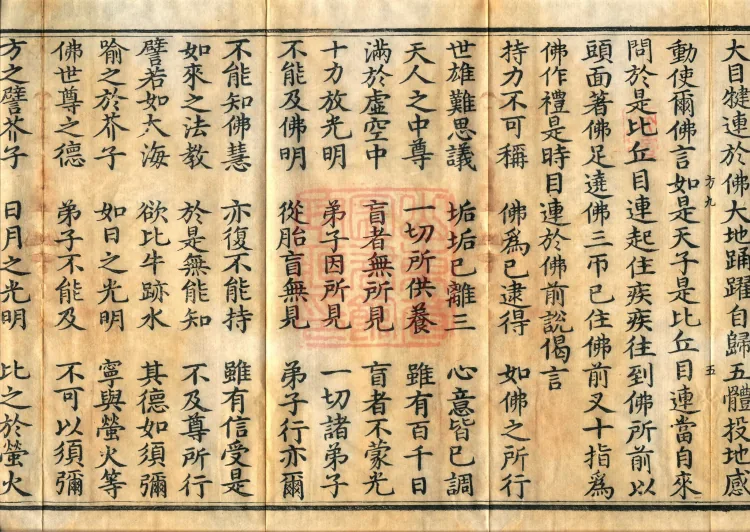 大目犍連於佛大地踊躍自歸五體投地感
方九 五
動使爾佛言如是天子是比丘目連當自來
問於是比丘目連起住疾疾往到佛所前以
頭面著佛足遶佛三帀已住佛前叉十指為
佛作禮是時目連於佛前說偈言
持力不可稱 佛為已逮得 如佛之所行
世雄難思議 垢垢已離三 心意皆已調
天人之中尊 一切所供養 雖有百千日
滿於虛空中 盲者無所見 盲者不蒙光
十力放光明 弟子因所見 一切諸弟子
不能及佛明 從胎盲無見 弟子行亦爾
不能知佛慧 亦復不能持 雖有信受是
如來之法教 於是無能知 不及尊所行
譬若如大海 欲比牛跡水 其德如須彌
喻之於芥子 如日之光明 寧與螢火等
佛世尊之德 弟子不能及 不可以須彌
方之譬芥子 日月之光明 比之於螢火